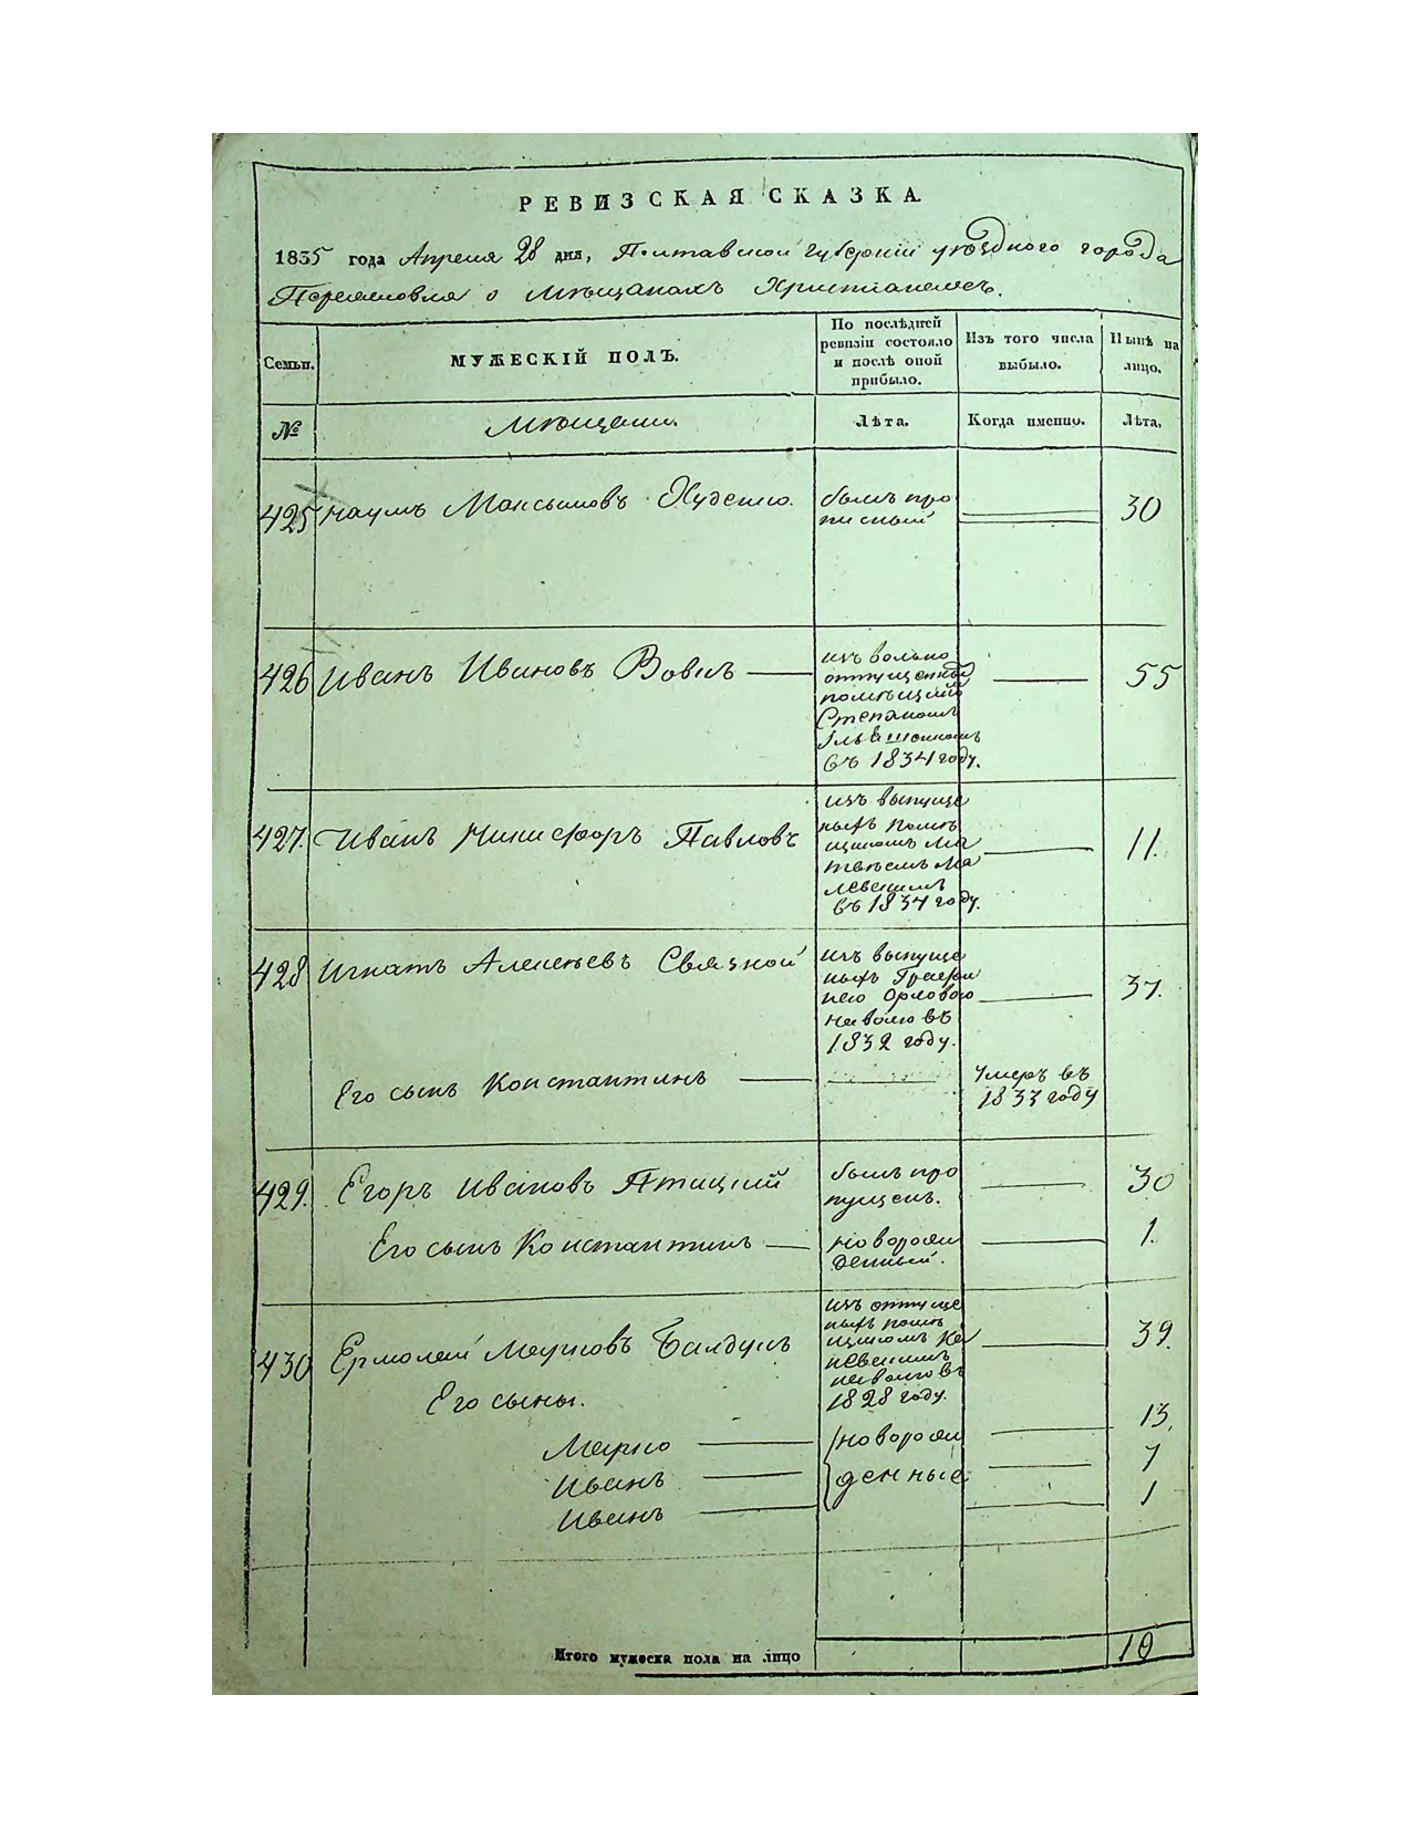 РЕВИЗСКАЯ СКАЗКА.
1835 года Апреля 28 дня, Полтавской губернии уѣздного города
Переяславля о Мѣщанахъ Христианехъ.
Семьи.
МУЖЕСКІЙ ПОЛЪ.
По послѣдней
ревизіи состояло
и послѣ оной
прибыло.
Изъ того числа
выбыло.
Нынѣ на
лицо.
№
Мѣщани.
Лѣта.
Когда именно.
Лѣта.
425 Наумъ Максимовъ Худенко.
былъ про
писный
30
426 Иванъ Ивановъ Вовкъ
изъ вольно
отпущенный
помѣщикомъ
Степаномъ
въ 1834 году.
55
427. Иванъ Никифоръ Павловъ
изъ выпуще
ныхъ помѣ
щикомъ Ма
твѣемъ Ма
левскимъ
въ 1834 году.
11.
428 Игнатъ Алексѣевъ Связной
изъ выпуще
ныхъ Графи
нею Орловою
на волю въ
1832 году.
37.
Его сынъ Константинъ
Умеръ въ
1833 году
429. Егоръ Ивановъ Птицкий
былъ про
пущенъ.
30
Его сынъ Константинъ
новорож
денный.
1.
430 Ермолай Марковъ Балдукъ
изъ отпуще
ныхъ помѣ
щикомъ Ка
невскимъ
на волю въ
1828 году.
39.
Его сыны.
Марко
новорож
13.
Иванъ
денные
7
Иванъ
1
Итого мужеска пола на лицо
10